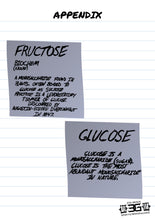 APPENDIX
FRUCTOSE
BIOCHEM
(NOUN)
A MONOSACCHARIDE FOUND IN
OFTEN BOUND TO
GLUCOSE AS SUCROSE
FRUCTOSE IS A LEVOROTATORY
ISOMER OF GLUCOSE
DISCOVERED BY
AUGUSTIN-PIERRE DUBRUNFAUT
IN 1847.
GLUCOSE
GLUCOSE IS A
MONOSACCHARIDE (SUGAR).
GLUCOSE IS THE MOST
ABUNDANT MONOSACCHARIDE
IN NATURE.
3G